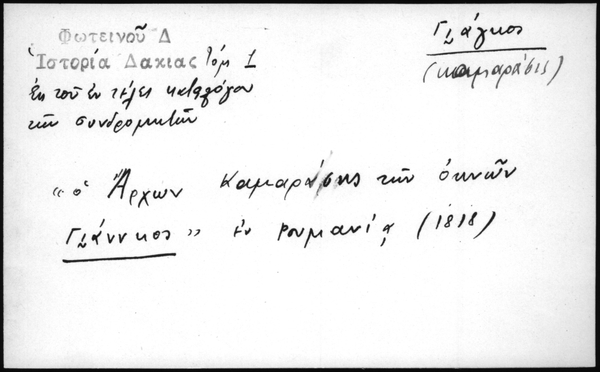 Φωτεινοῦ Δ
Ἱστορία Δακιας Τόμ 1
Ἐκ τοῦ ἐν τέλει καταλόγου
τῶν συνδρομητῶν
Γιάγκος
(καμαράσις)
« ὁ Ἄρχων Καμαράσης τῶν ὀκνῶν
Γιάννκος » ἐν Ρουμανίᾳ (1818)